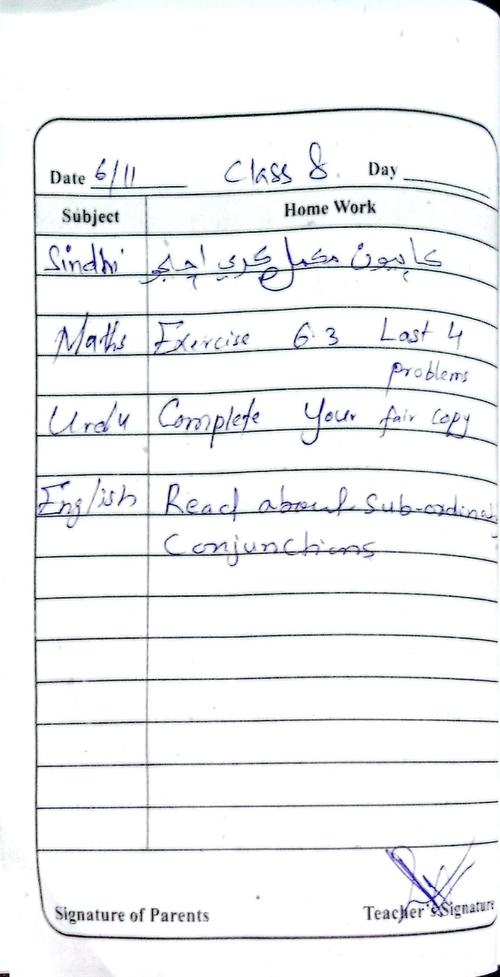 Date 6/11 Class 8. Day
Subject Home Work
Sindhi ڪاپيون مڪمل ڪري اچجو
Maths Exercise 6.3 Last 4
problems
Urdu Complete Your fair copy
English Read about Sub-ordinat
Conjunctions
Signature of Parents Teacher's Signature